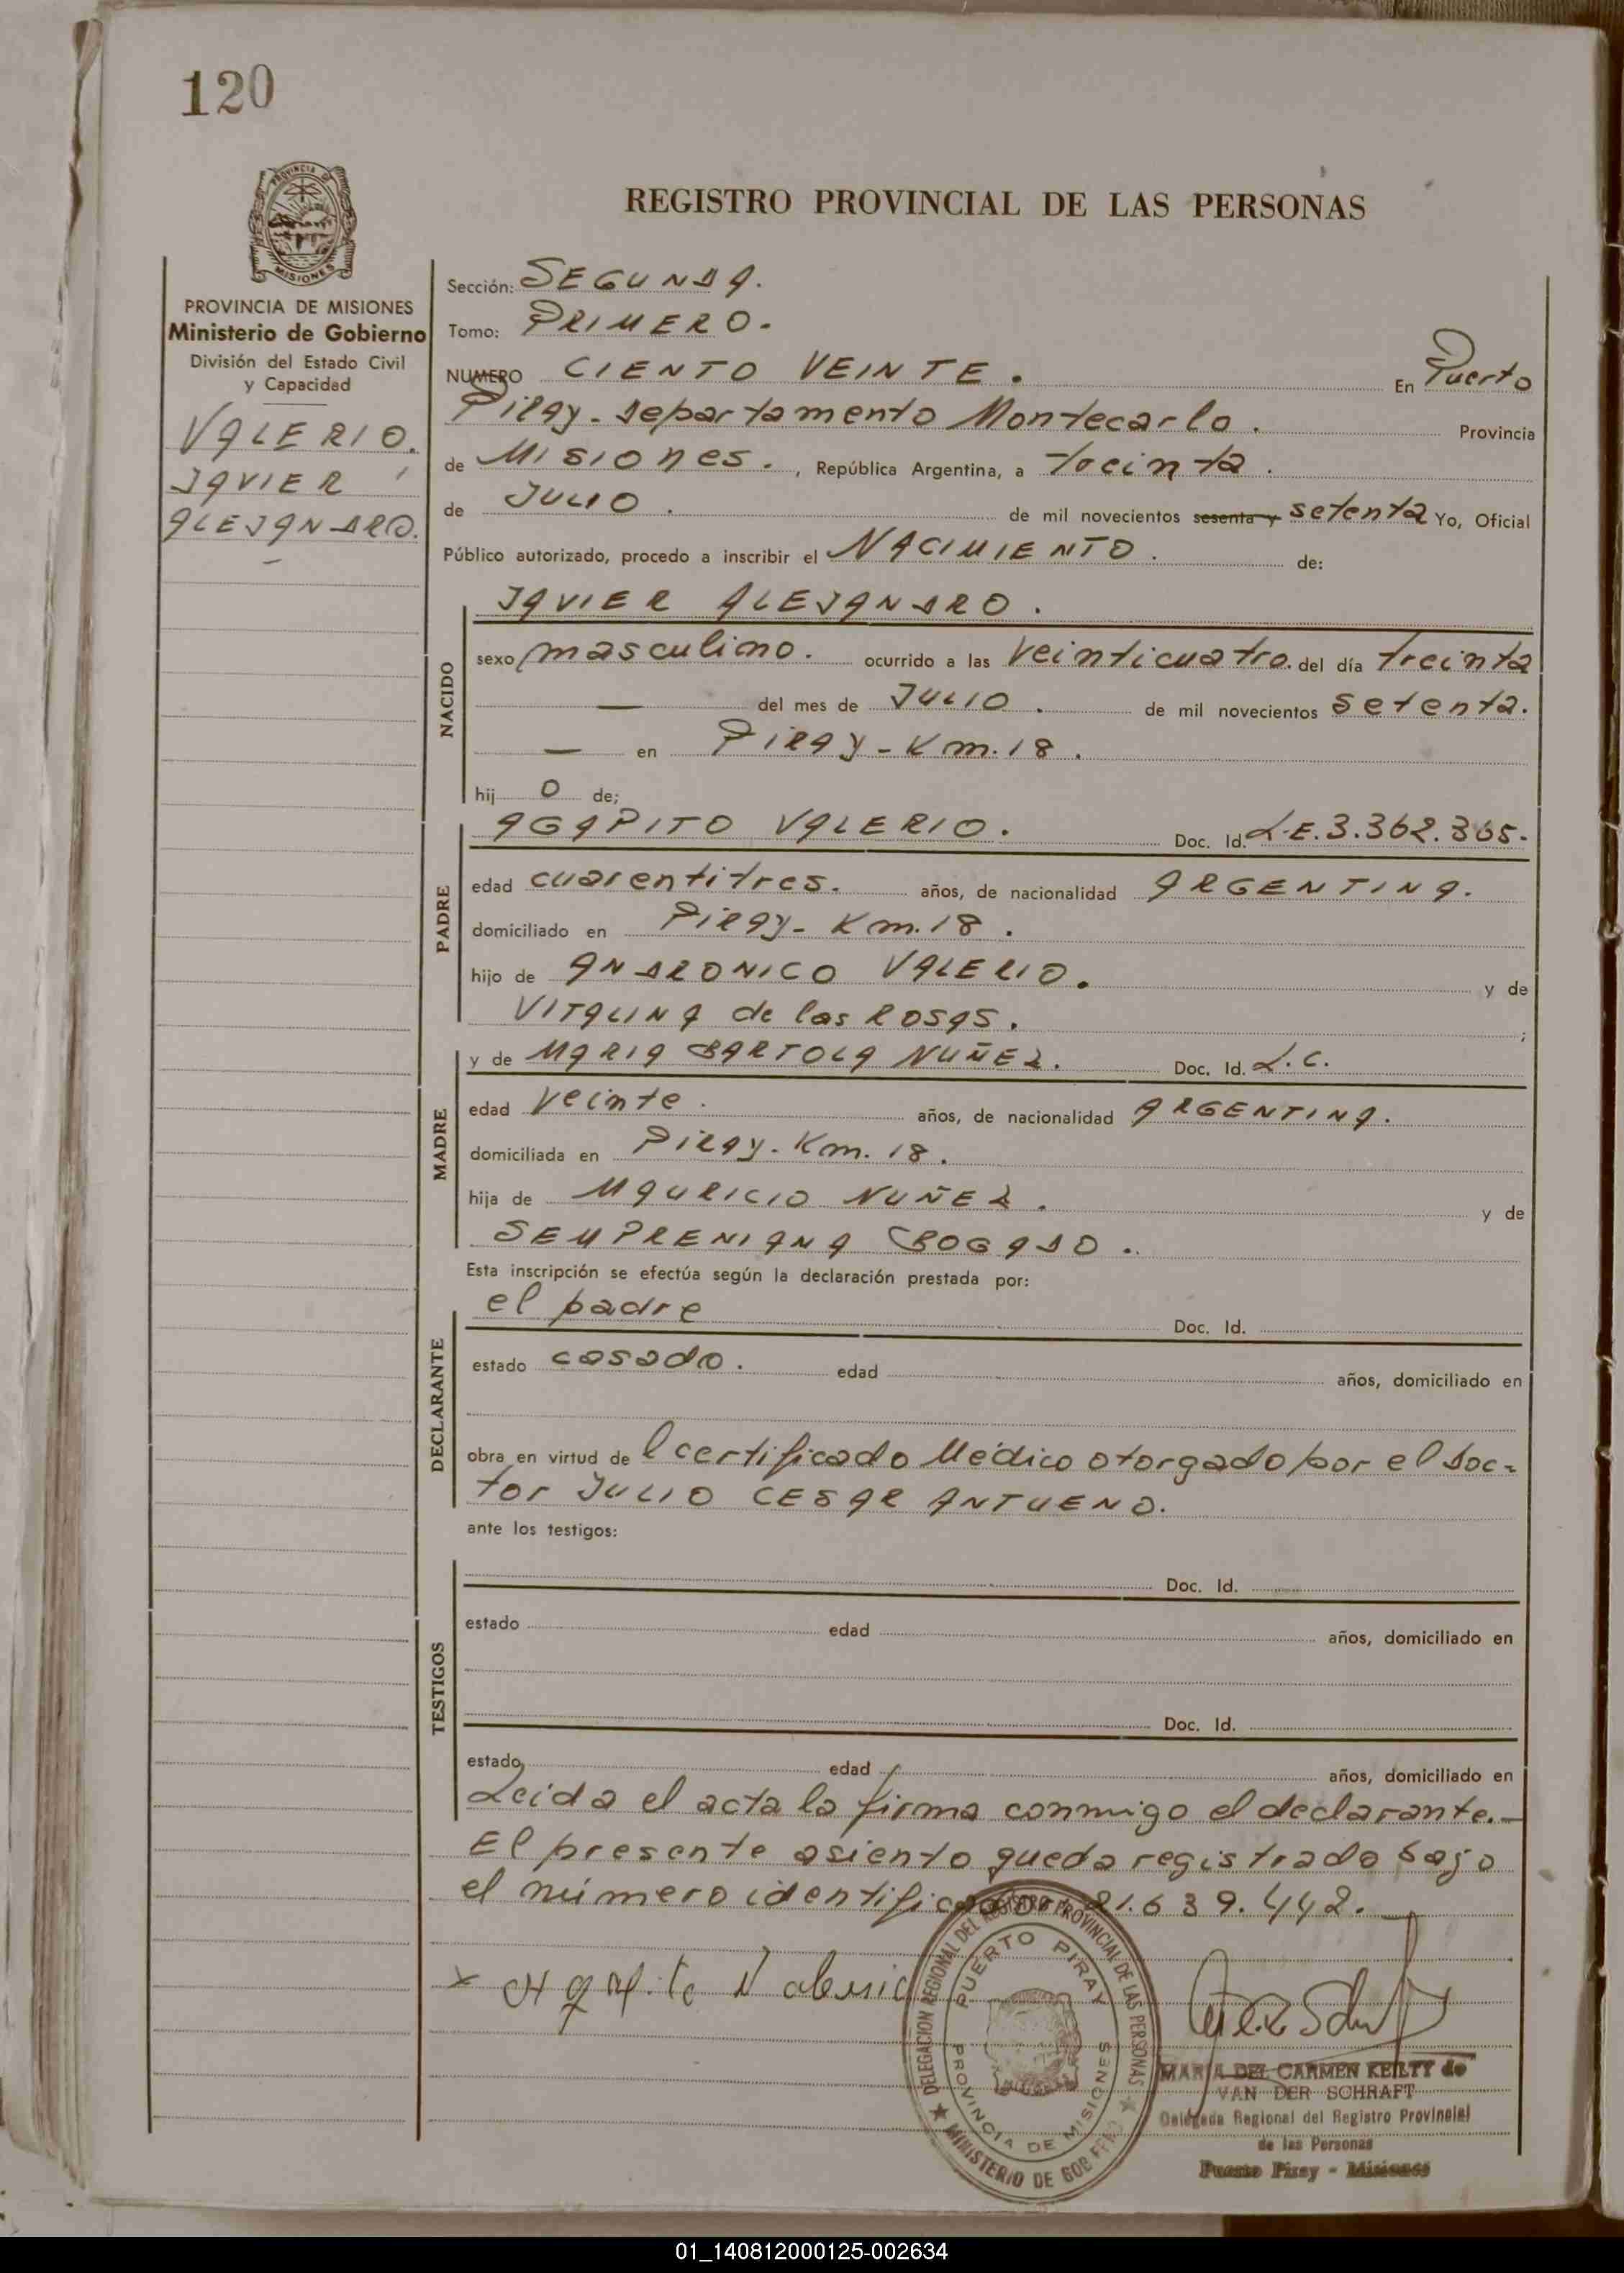 120
PROVINCIA DE MISIONES
REGISTRO PROVINCIAL DE LAS PERSONAS
PROVINCIA DE MISIONES
Ministerio de Gobierno
División del Estado Civil
y Capacidad
VALERIO.
JAVIER
ALEJANDRO.
Sección: SEGUNDA.
Tomo: PRIMERO.
NUMERO CIENTO VEINTE. En Puerto
Piray - departamento Montecarlo. Provincia
de Misiones., República Argentina, a treinta.
de JULIO. de mil novecientos sesenta y setenta Yo, Oficial
Público autorizado, procedo a inscribir el NACIMIENTO. de:
NACIDO
JAVIER ALEJANDRO.
sexo masculino. ocurrido a las veinticuatro. del día treinta
— del mes de JULIO. de mil novecientos setenta.
— en Piray - Km. 18.
hij o de;
PADRE
AGAPITO VALERIO. Doc. Id. L.E. 3.362.365.-
edad cuarentitres. años, de nacionalidad ARGENTINA.
domiciliado en Piray - Km. 18.
hijo de ANDRONICO VALERIO. y de
VITALINA de las ROSAS. ;
MADRE
y de MARIA BARTOLA NUÑEZ. Doc. Id. L.C.
edad veinte. años, de nacionalidad ARGENTINA.
domiciliada en Piray - Km. 18.
hija de MAURICIO NUÑEZ. y de
SEMPRENIANA BOGADO.
Esta inscripción se efectúa según la declaración prestada por:
DECLARANTE
el padre Doc. Id.
estado casado. edad años, domiciliado en
obra en virtud de l certificado Médico otorgado por el Doc-
tor JULIO CESAR ANTUENO.
ante los testigos:
TESTIGOS
Doc. Id.
estado edad años, domiciliado en
Doc. Id.
estado edad años, domiciliado en
Leida el acta la firma conmigo el declarante.—
El presente asiento queda registrado bajo
el número identificador 21.639.442.—
x Agapito Valerio
DELEGACION REGIONAL DEL REGISTRO PROVINCIAL DE LAS PERSONAS
PUERTO PIRAY
PROVINCIA DE MISIONES
MINISTERIO DE GOBIERNO
MARIA DEL CARMEN KEILTY de
VAN DER SCHRAFT
Delegada Regional del Registro Provincial
de las Personas
Puerto Piray - Misiones
01_140812000125-002634